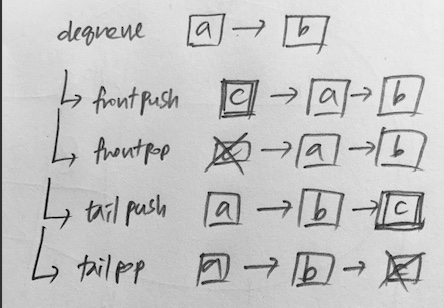 dequeue a → b
↳ frontpush c → a → b
↳ frontpop c → a → b
↳ tail push a → b → c
↳ tail pop a → b → c